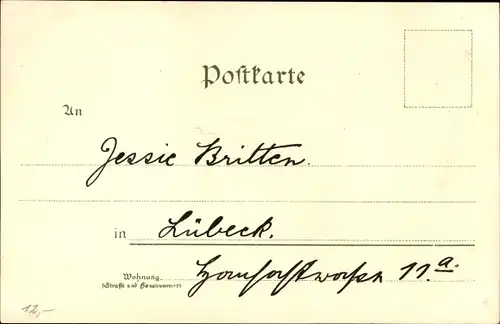 Postkarte
An
Jessie Britten.
in Lübeck.
Wohnung
(Straße und Hausnummer)
11.a.
12,-